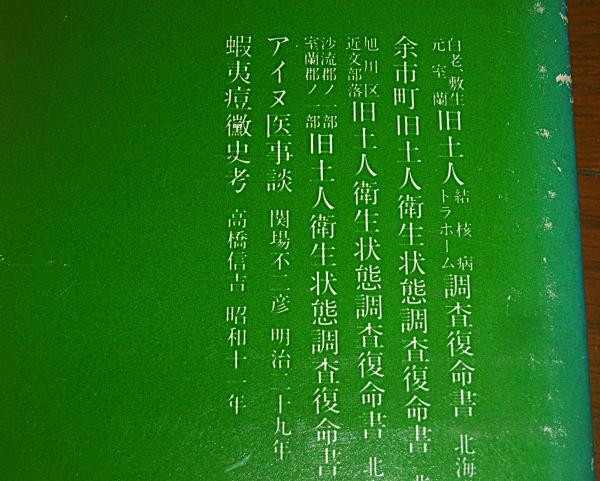 白老 敷生 元室蘭 旧土人 結核病 トラホーム 調査復命書 北海
余市町旧土人衛生状態調査復命書 北
旭川区 近文部落 旧土人衛生状態調査復命書 北
沙流郡ノ一部 室蘭郡ノ一部 旧土人衛生状態調査復命書
アイヌ医事談 関場不二彦 明治二十九年
蝦夷痘黴史考 高橋信吉 昭和十一年